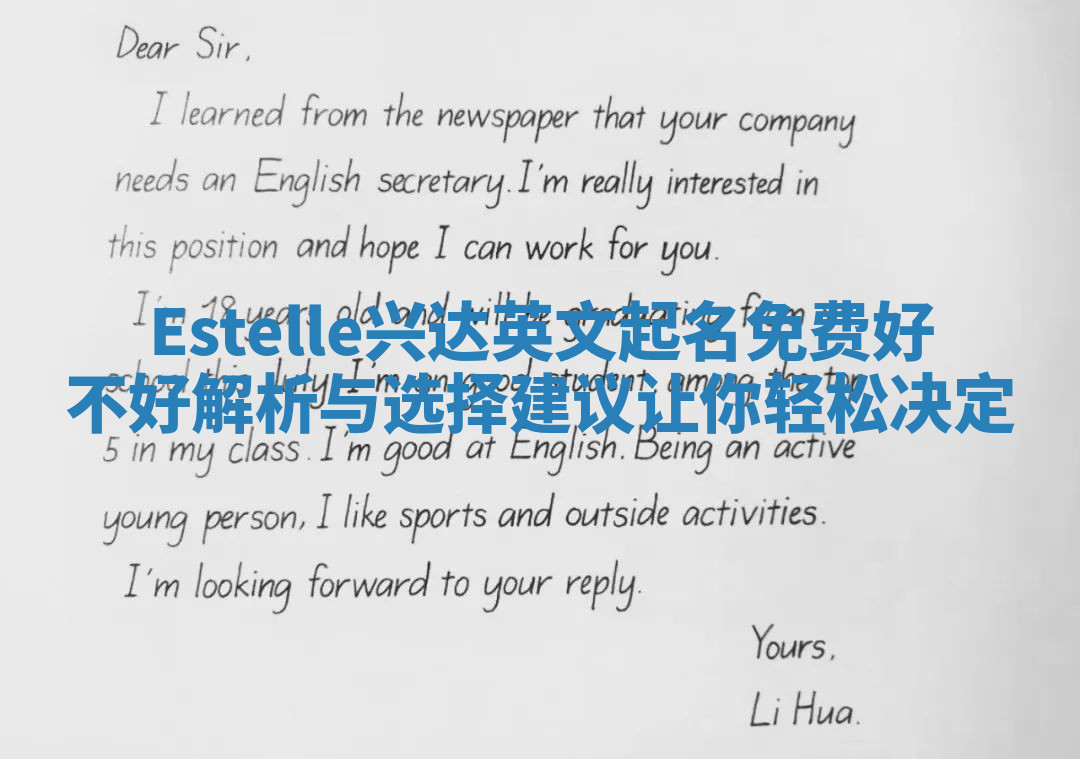 Dear Sir,
I learned from the newspaper that your company
needs an English secretary. I'm really interested in
this position and hope I can work for you.
I'm 18 years old and will be graduating from
Estelle兴达英文起名免费好
school this July. I'm an good student among the top
不好解析与选择建议让你轻松决定
5 in my class. I'm good at English. Being an active
young person, I like sports and outside activities.
I'm looking forward to your reply.
Yours,
Li Hua.